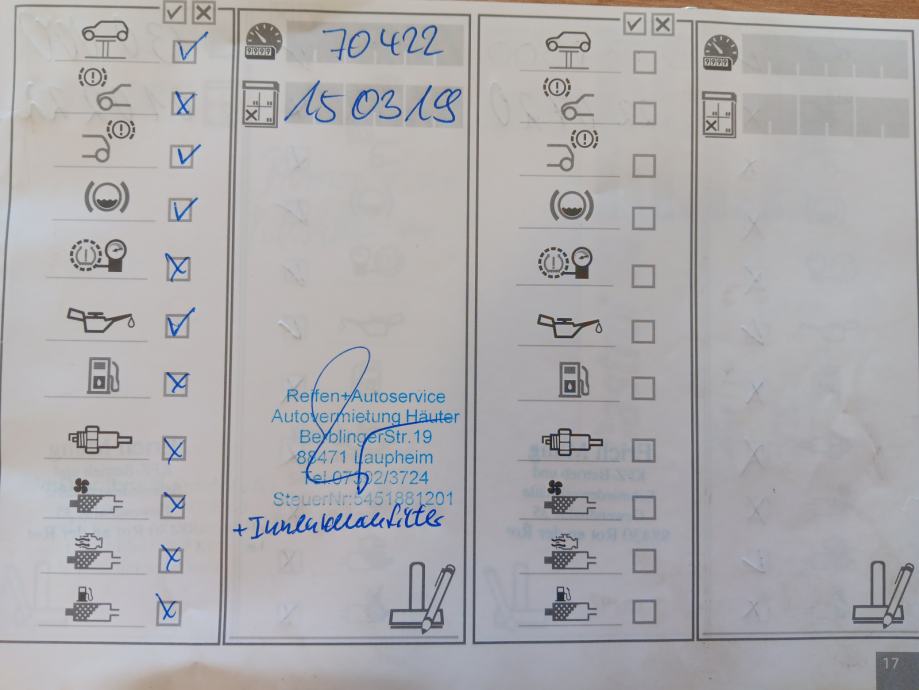 70422
150319
Reifen+Autoservice
Autovermietung Häuter
BerblingerStr.19
88471 Laupheim
Tel.07392/3724
SteuerNr:5451881201
+Innenraumfilter
17